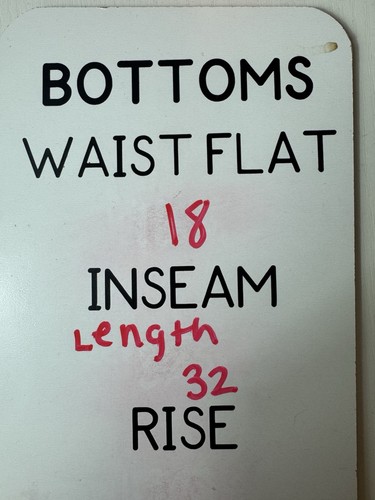 BOTTOMS
WAIST FLAT
18
INSEAM
Length
32
RISE